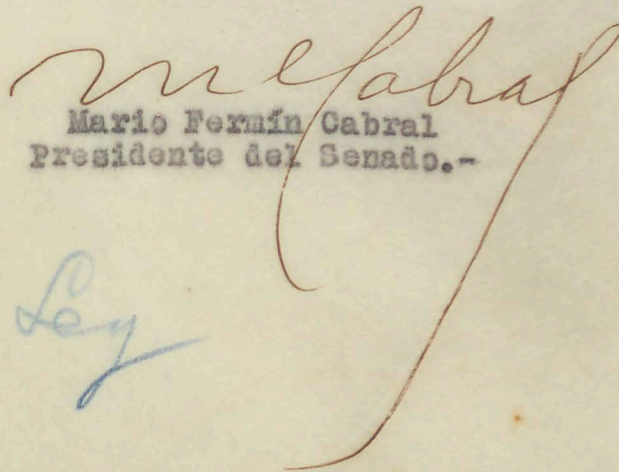 M F Cabral
Mario Fermín Cabral
Presidente del Senado.-
Ley